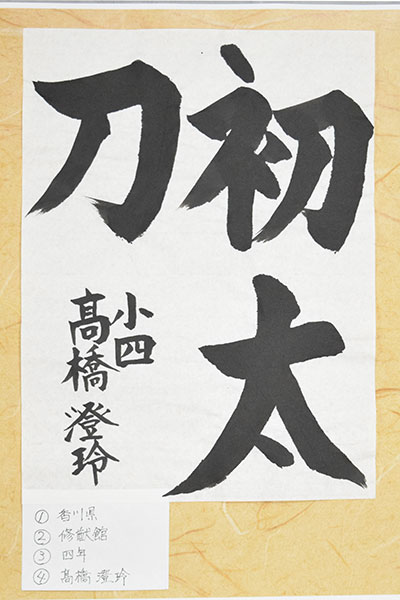 初太
刀
小四
髙橋澄玲
① 香川県
② 修猷館
③ 四年
④ 髙橋澄玲